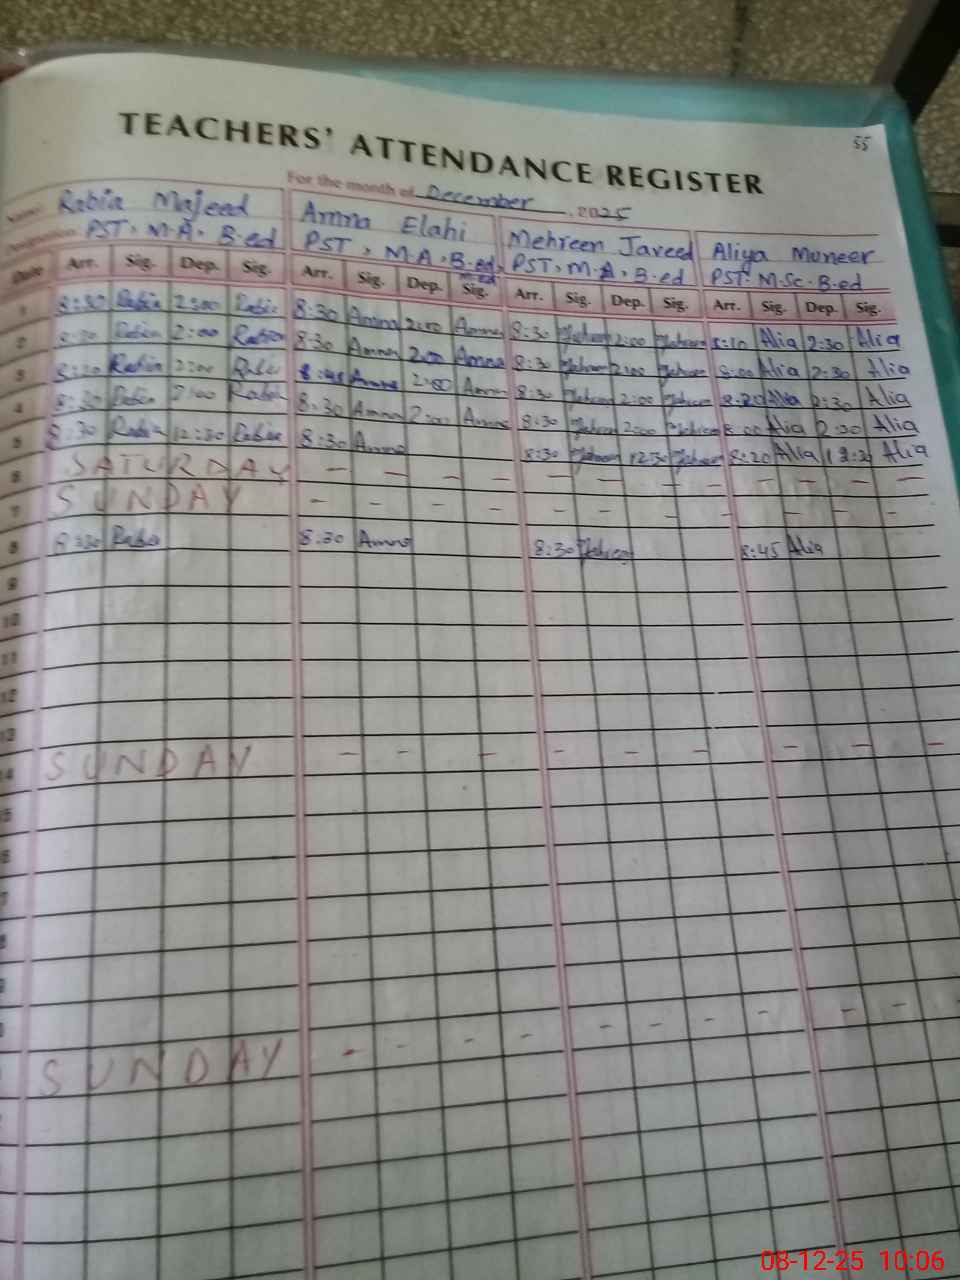 55
TEACHERS' ATTENDANCE REGISTER
For the month of December, 2025
Name Rabia Majeed Amna Elahi Mehreen Javeed Aliya Muneer
Designation PST, M.A, B.ed PST, M.A, B.ed, M.ed PST, M.A, B.ed PST, M.Sc, B.ed
Date Arr. Sig. Dep. Sig. Arr. Sig. Dep. Sig. Arr. Sig. Dep. Sig. Arr. Sig. Dep. Sig.
1 8:30 Rabia 2:00 Rabia 8:30 Amna 2:00 Amna 8:30 Mehreen 2:00 Mehreen 8:10 Alia 2:30 Alia
2 8:30 Rabia 2:00 Rabia 8:30 Amna 2:00 Amna 8:30 Mehreen 2:00 Mehreen 8:00 Alia 2:30 Alia
3 Rabia 2:00 Rabia Amna 2:00 Amna 8:30 Mehreen 2:00 Mehreen 8:20 Alia 2:30 Alia
4 8:30 Rabia 2:00 Rabia 8:30 Amna 2:00 Amna 8:30 Mehreen 2:00 Mehreen 8:00 Alia 2:30 Alia
5 8:30 Rabia 12:30 Rabia 8:30 Amna 8:30 Mehreen 12:30 Mehreen 8:20 Alia Alia
6 SATURDAY - - - - - - - - - - - -
7 SUNDAY - - - - - - - - - - - -
8 8:30 Rabia 8:30 Amna 8:30 Mehreen 8:45 Alia
9
10
11
12
13
14 SUNDAY - - - - - - - - -
5
6
7
8
9
SUNDAY - - - - - - - - - - -
08-12-25 10:06